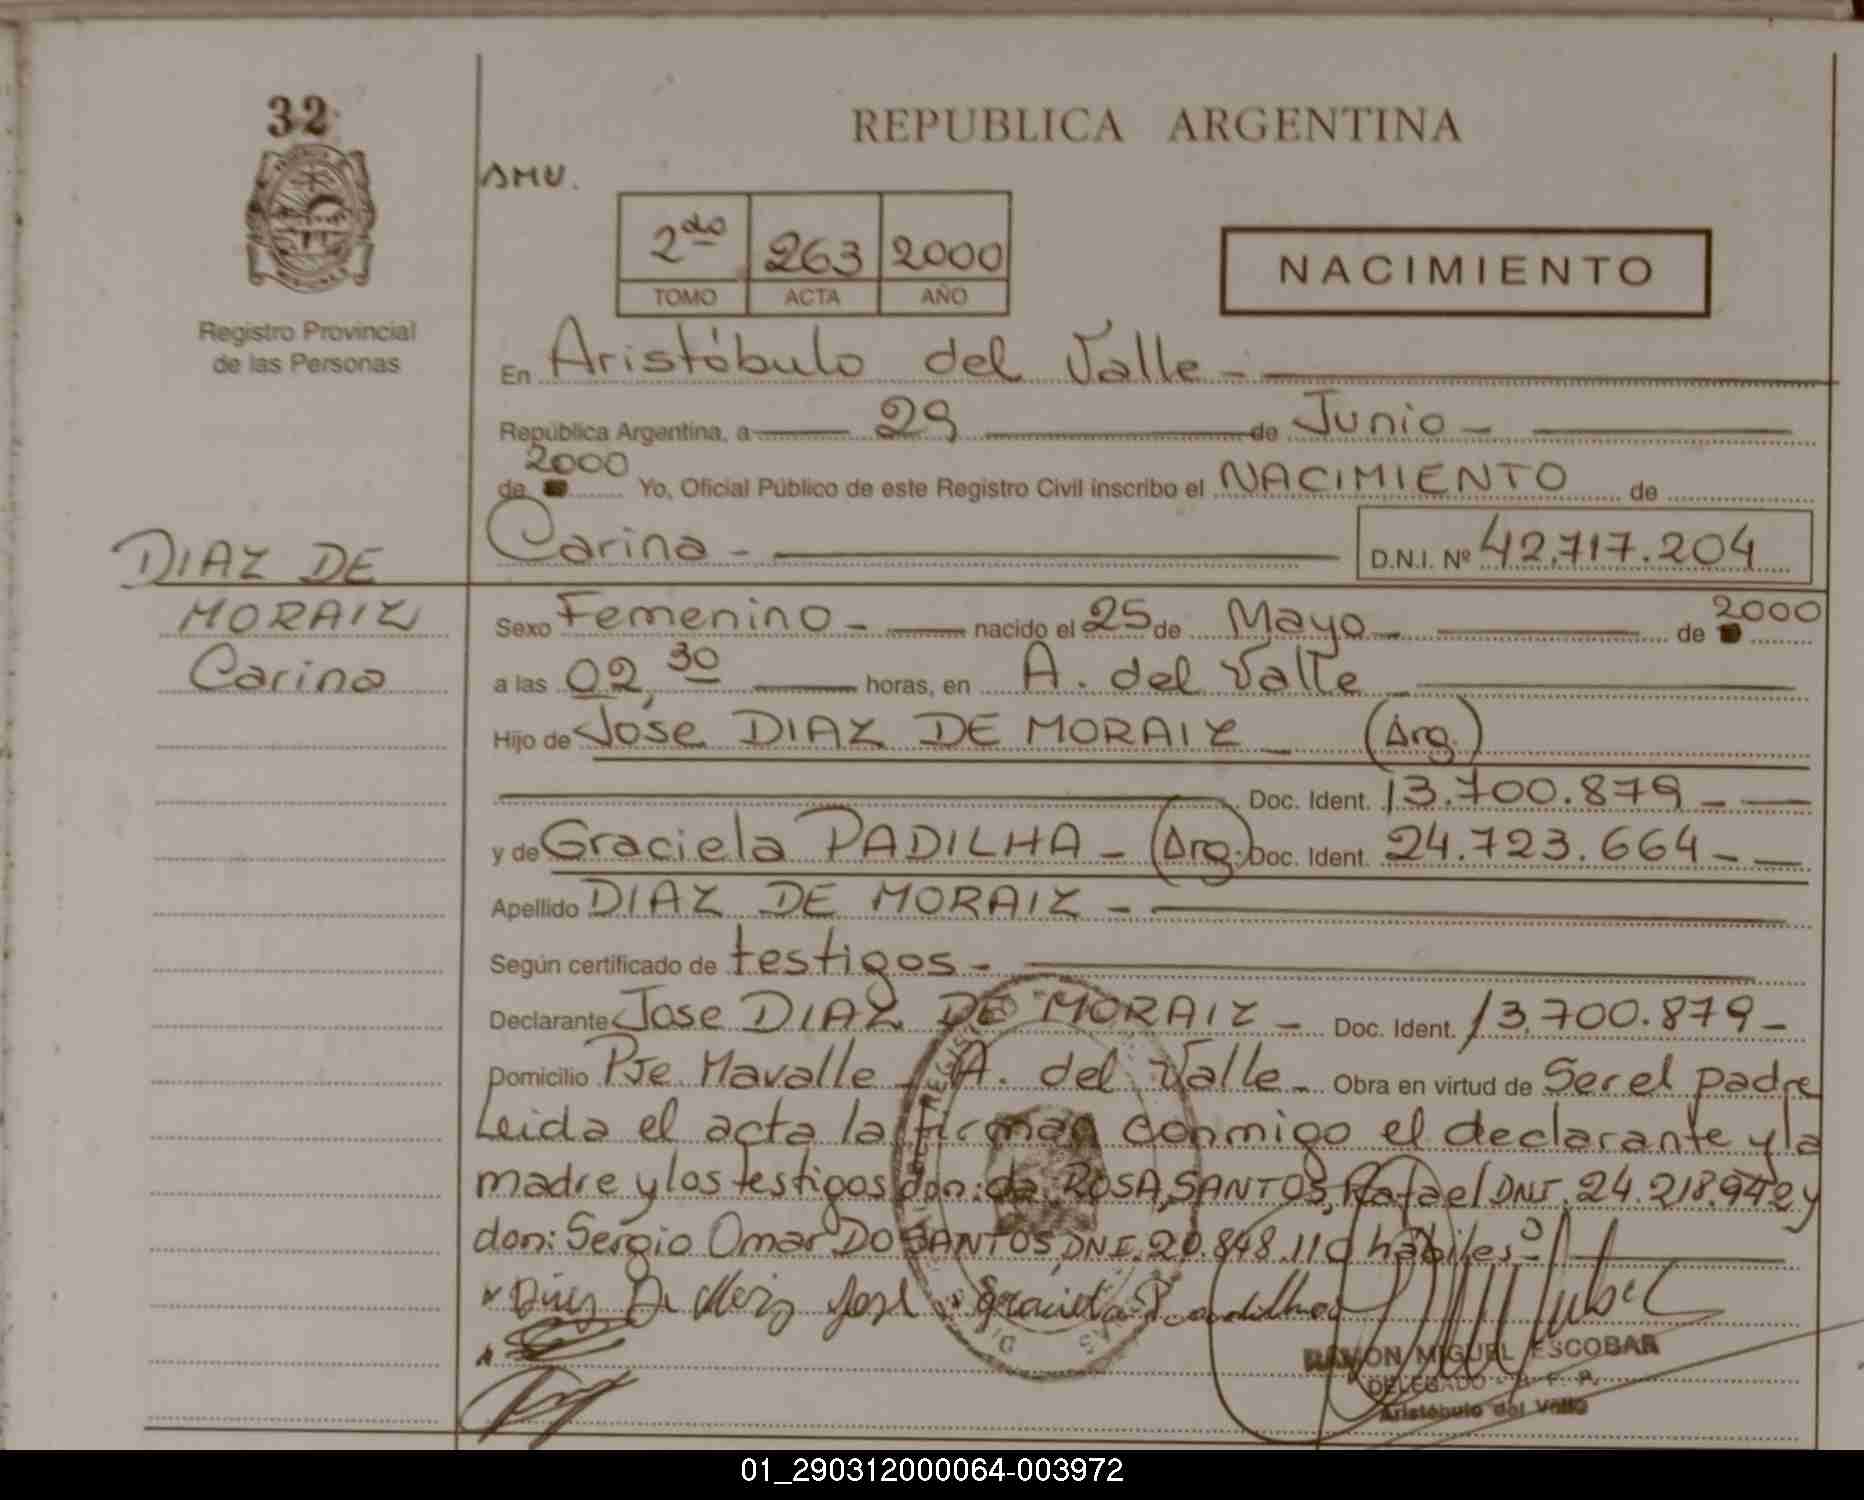 32
REPUBLICA ARGENTINA
AMU.
2do 263 2000
TOMO ACTA AÑO
NACIMIENTO
Registro Provincial
de las Personas
En Aristóbulo del Valle -
República Argentina, a 29 de Junio -
2000
de Yo, Oficial Público de este Registro Civil inscribo el NACIMIENTO de
Carina - D.N.I. Nº 42.717.204
DIAZ DE
MORAIZ
Carina
Sexo Femenino - nacido el 25 de Mayo - de 2000
a las 02,30 horas, en A. del Valle -
Hijo de José DIAZ DE MORAIZ - (Arg.)
Doc. Ident. 13.700.879 -
y de Graciela PADILHA - (Arg.) Doc. Ident. 24.723.664 -
Apellido DIAZ DE MORAIZ -
Según certificado de testigos -
Declarante Jose DIAZ DE MORAIZ - Doc. Ident. 13.700.879 -
Domicilio Pje. Mavalle - A. del Valle - Obra en virtud de Ser el padre
Leida el acta la firman conmigo el declarante y la
madre y los testigos don: da ROSA SANTOS, Rafael DNI. 24.218.942 y
don: Sergio Omar DO SANTOS, DNI. 20.848.110 habiles -
Jose Graciela Padilha
RAMON MIGUEL ESCOBAR
DELEGADO
Aristóbulo del Valle
01_290312000064-003972